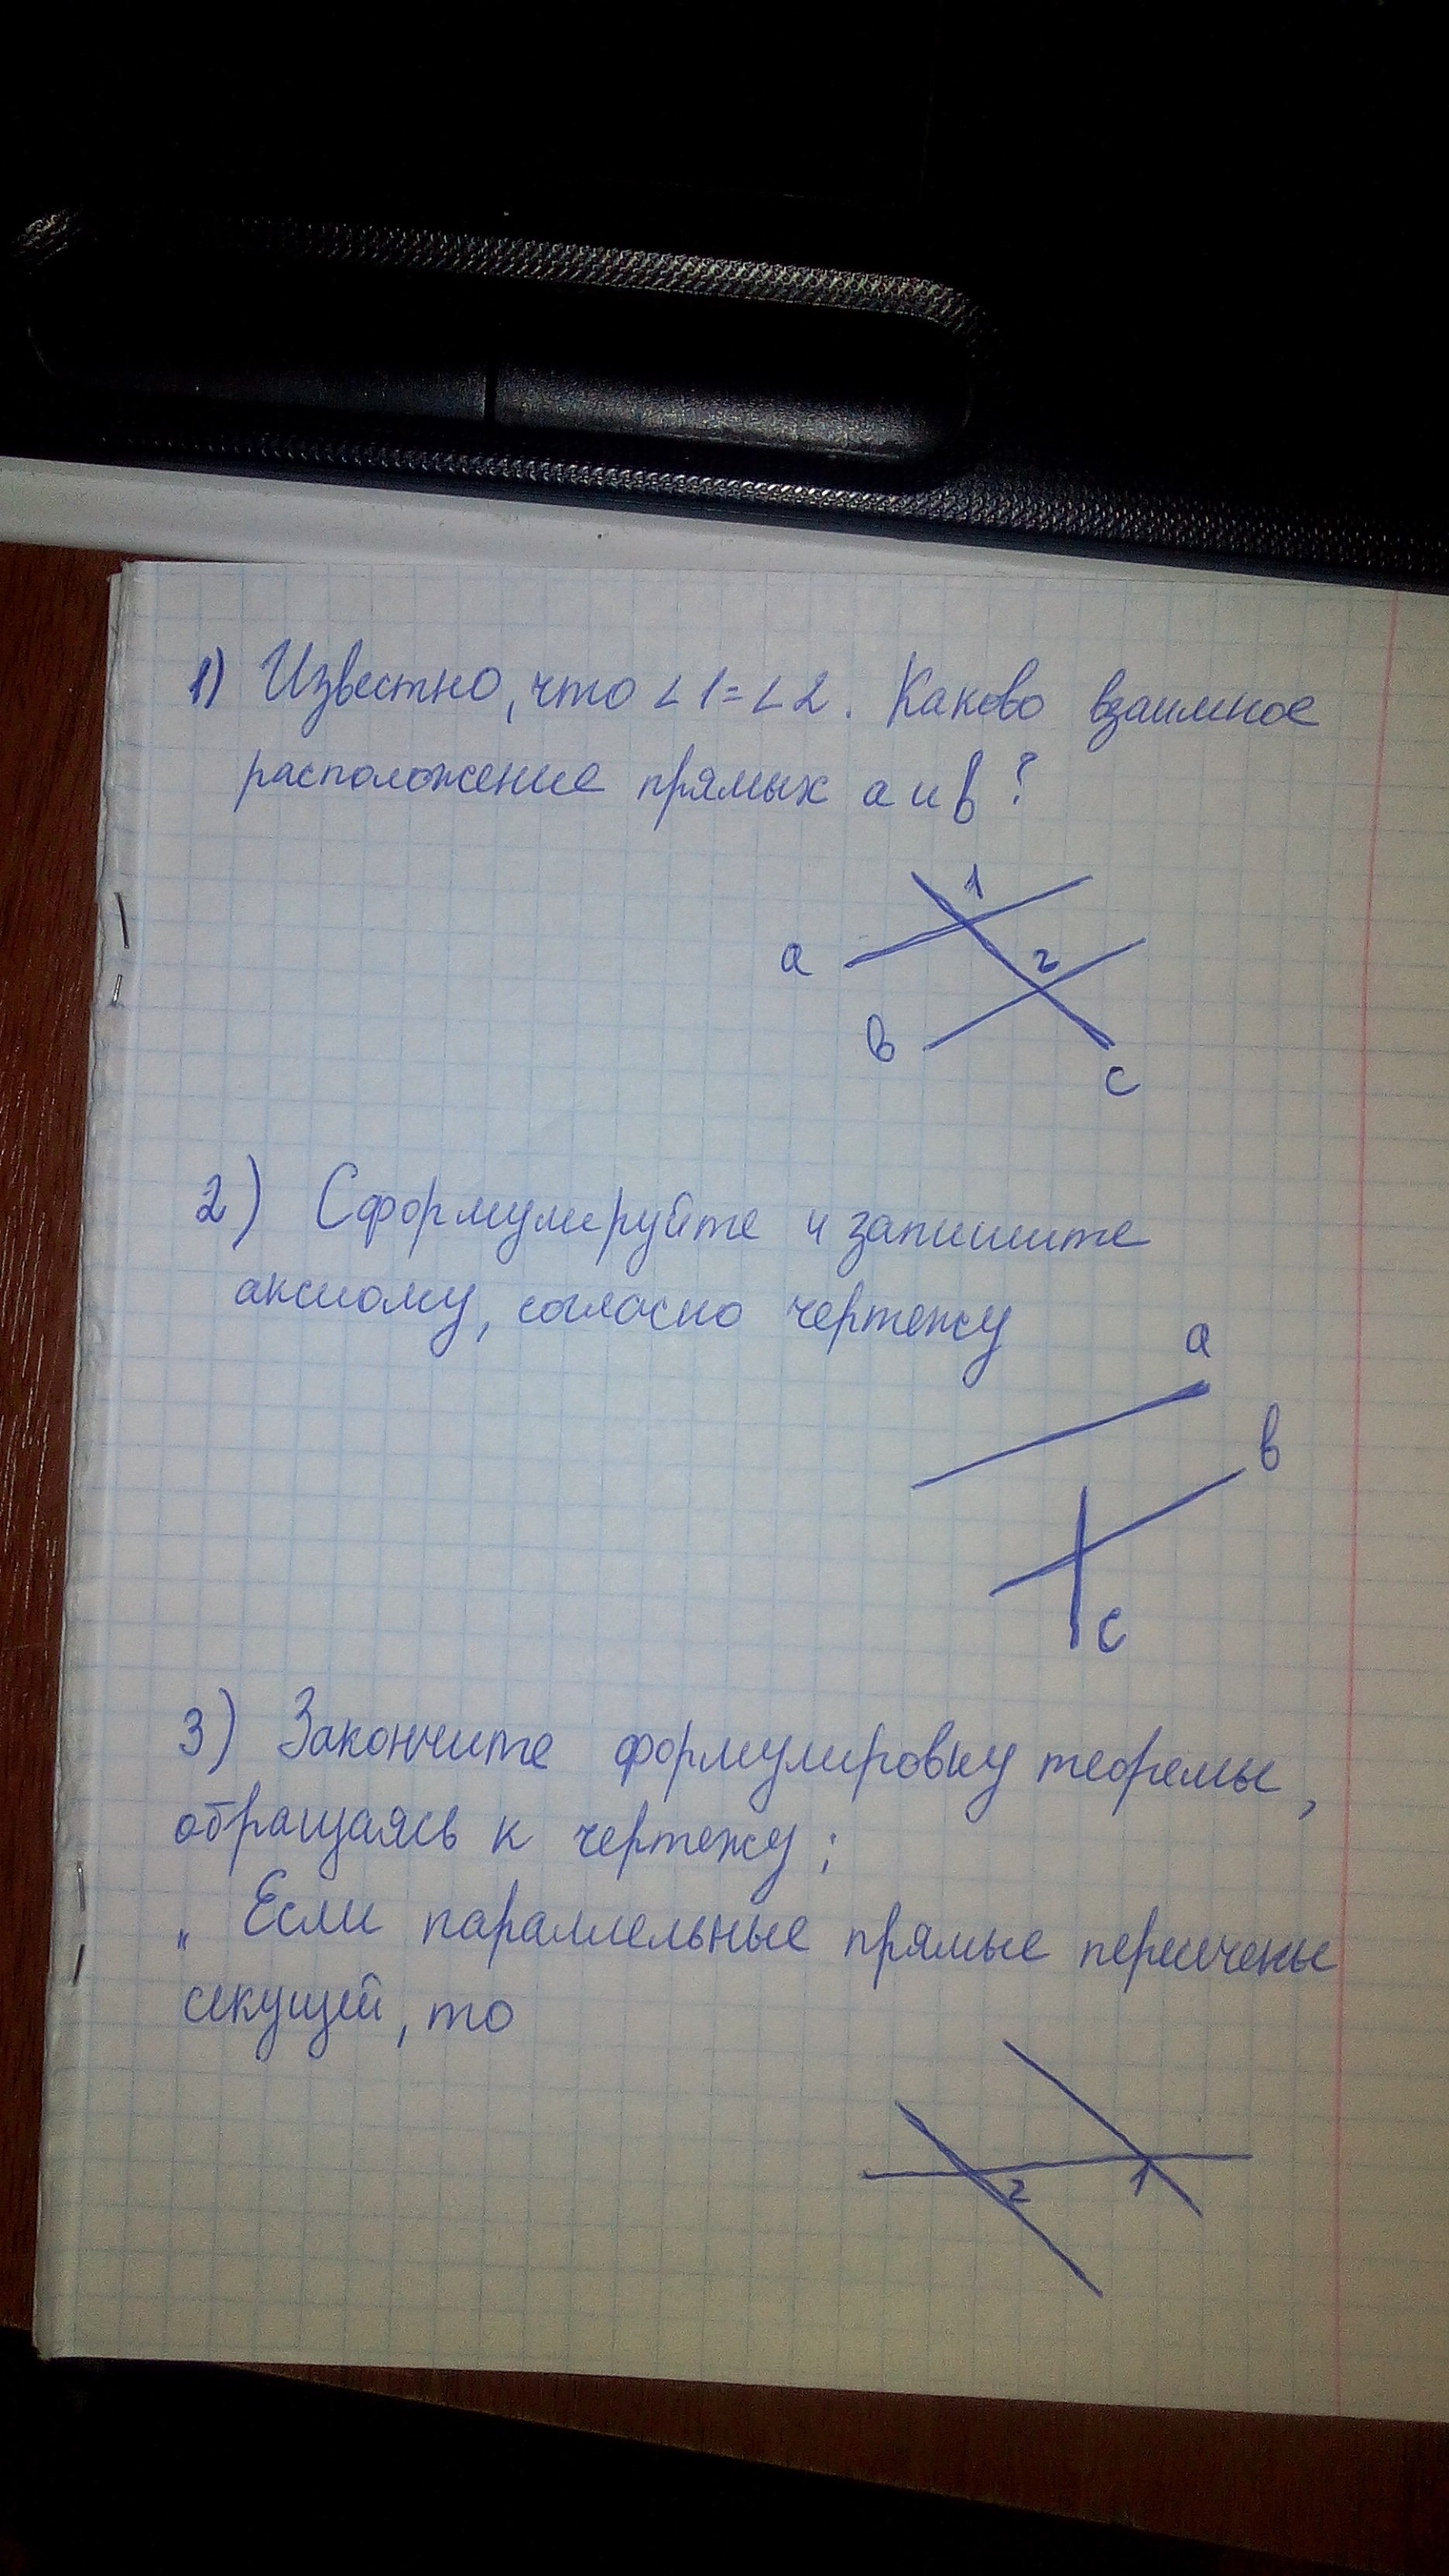 1) Известно, что ∠1=∠2. Каково взаимное
расположение прямых a и b?
1
a
2
b
c
2) Сформулируйте и запишите
аксиому, согласно чертежу
a
b
c
3) Закончите формулировку теоремы,
обращаясь к чертежу:
„Если параллельные прямые пересечены
секущей, то
2 1